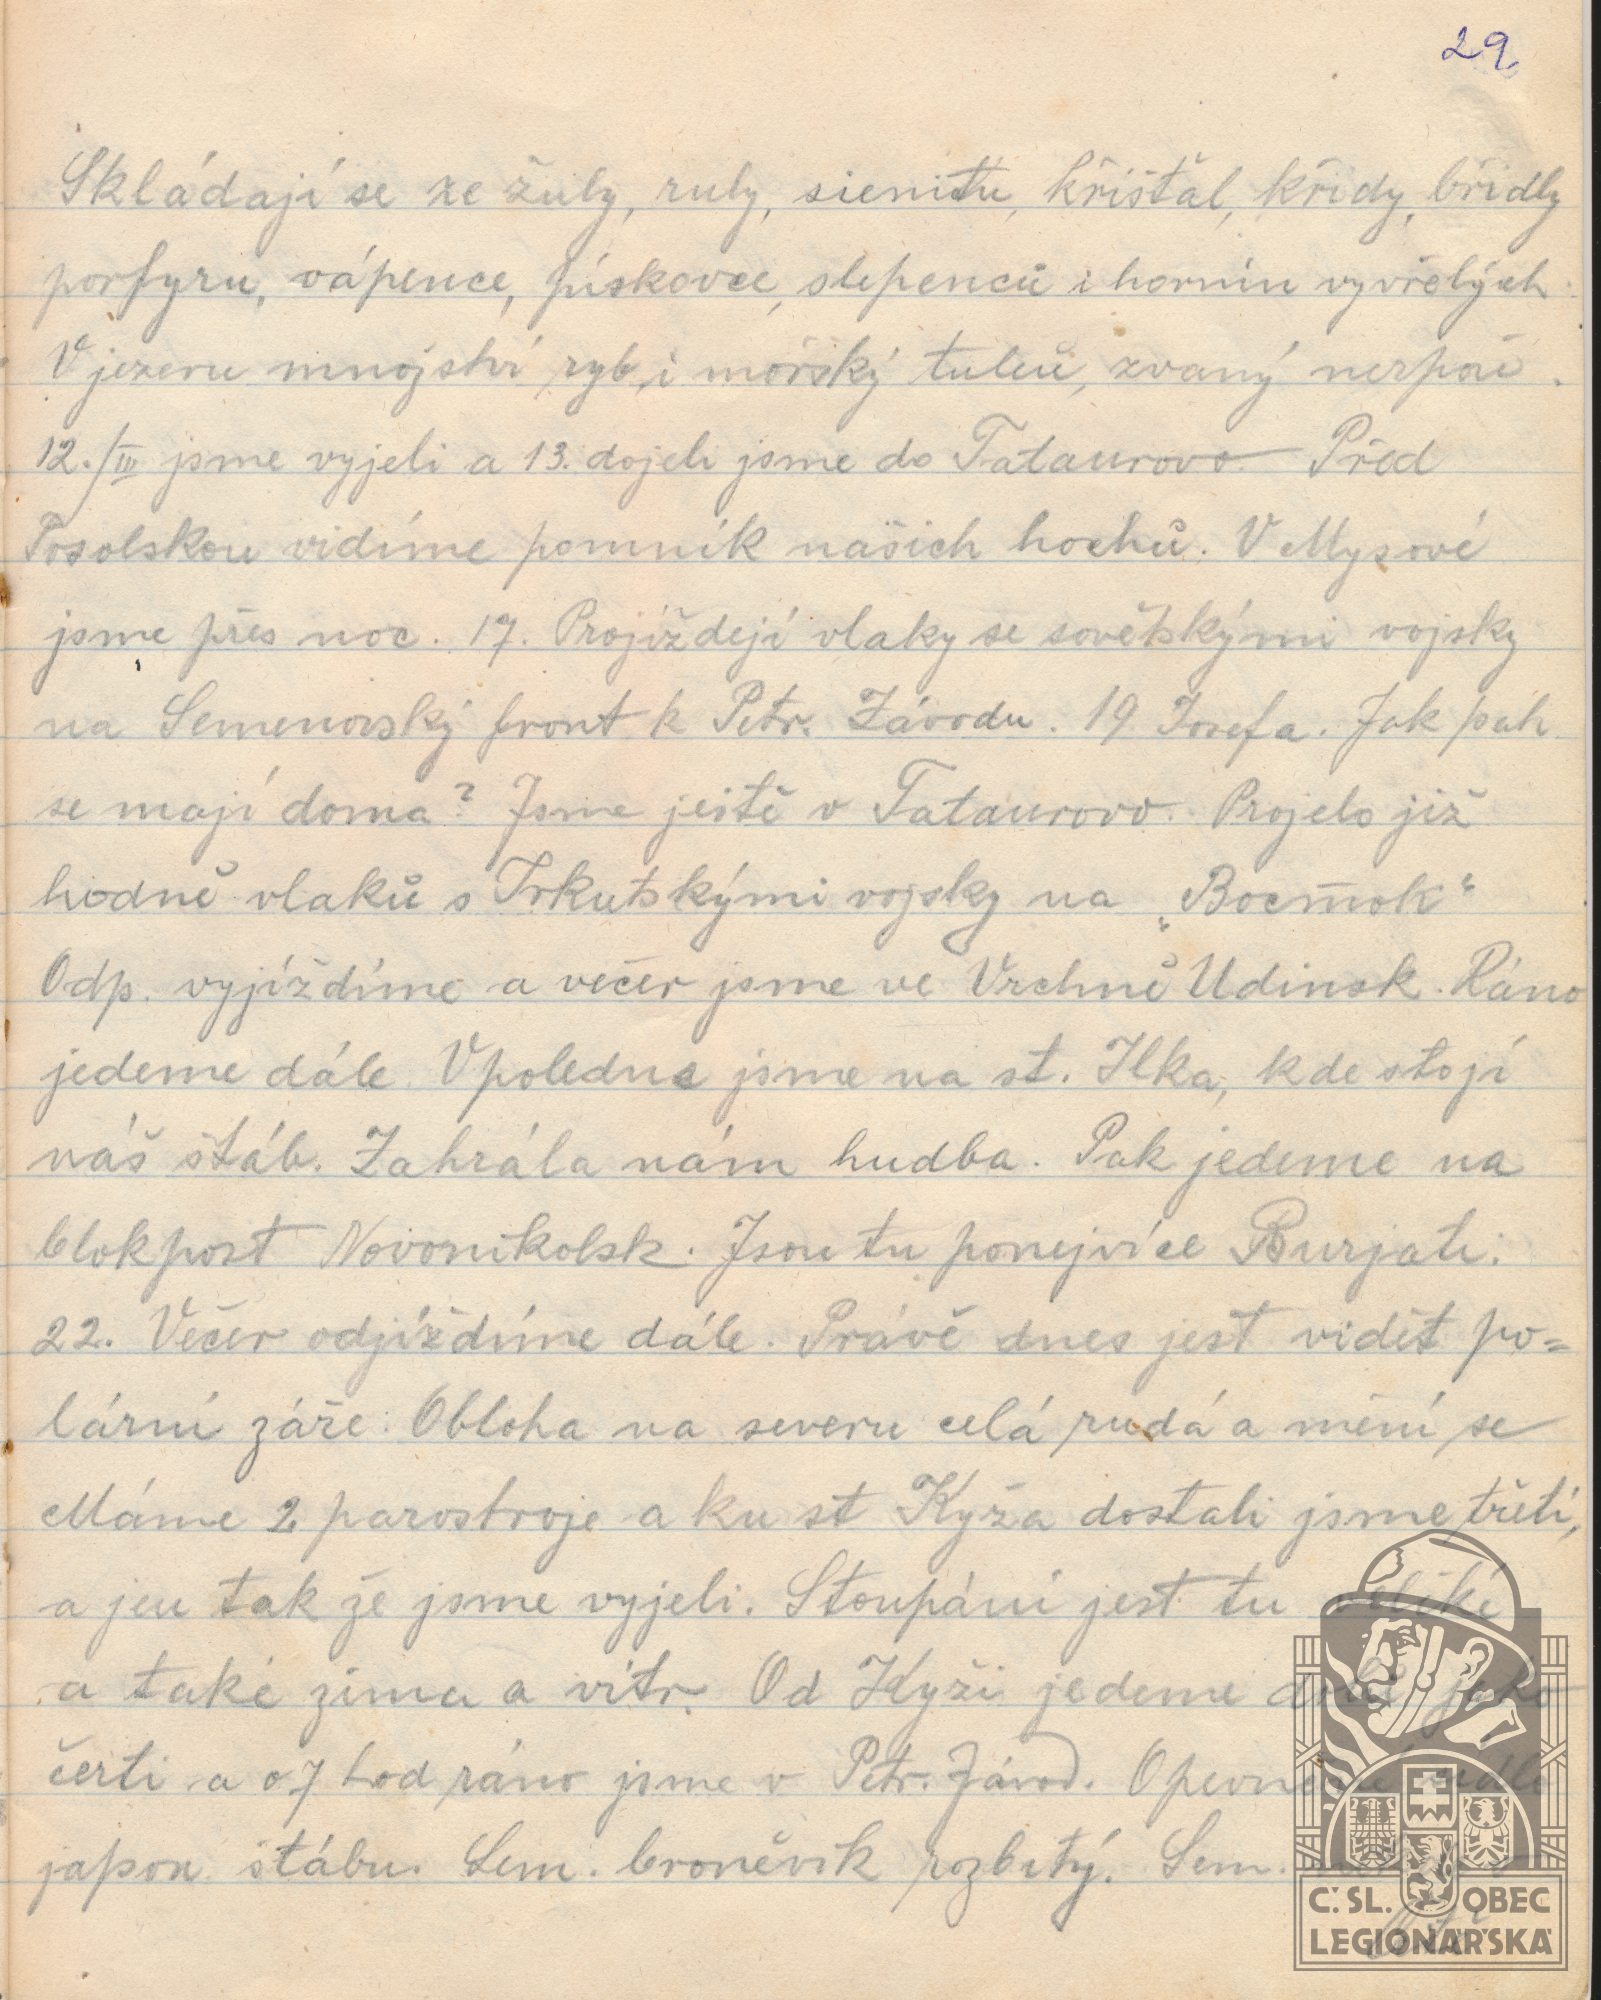 29
Skládají se ze žuly, ruly, sienitu, křišťal, křídy, břidly
porfyru, vápence, pískovce, slepenců i hornin vyvřelých.
V jezeru množství ryb, i mořský tuleň, zvaný nerpou.
12./III jsme vyjeli a 13. dojeli jsme do Tataurovo. Před
Posolskou vidíme pomník našich hochů. V Mysové
jsme přes noc. 17. Projíždějí vlaky se sovětskými vojsky
na Semenovský front k Petr. Závodu. 19 Josefa. Jak pak
se mají doma? Jsme ještě v Tataurovo. Projelo již
hodně vlaků s Irkutskými vojsky na „Восток“
Odp. vyjíždíme a večer jsme ve Vrchně Udinsk. Ráno
jedeme dále. V poledne jsme na st. Ilka, kde stojí
náš štáb. Zahrála nám hudba. Pak jedeme na
blokpost Novonikolsk. Jsou tu ponejvíce Burjati.
22. Večer odjíždíme dále. Právě dnes jest vidět po=
lární záře. Obloha na severu celá rudá a mění se
Máme 2 parostroje a ku st Kyža dostali jsme třetí,
a jen tak že jsme vyjeli. Stoupání jest tu veliké
a také zima a vítr. Od Kyži jedeme dolů jako
čerti a o 7 hod ráno jsme v Petr. Závod. Opevnění vedle
japon. štábu. Sem. broněvik rozbitý. Sem.
Č. SL. OBEC
LEGIONÁŘSKÁ